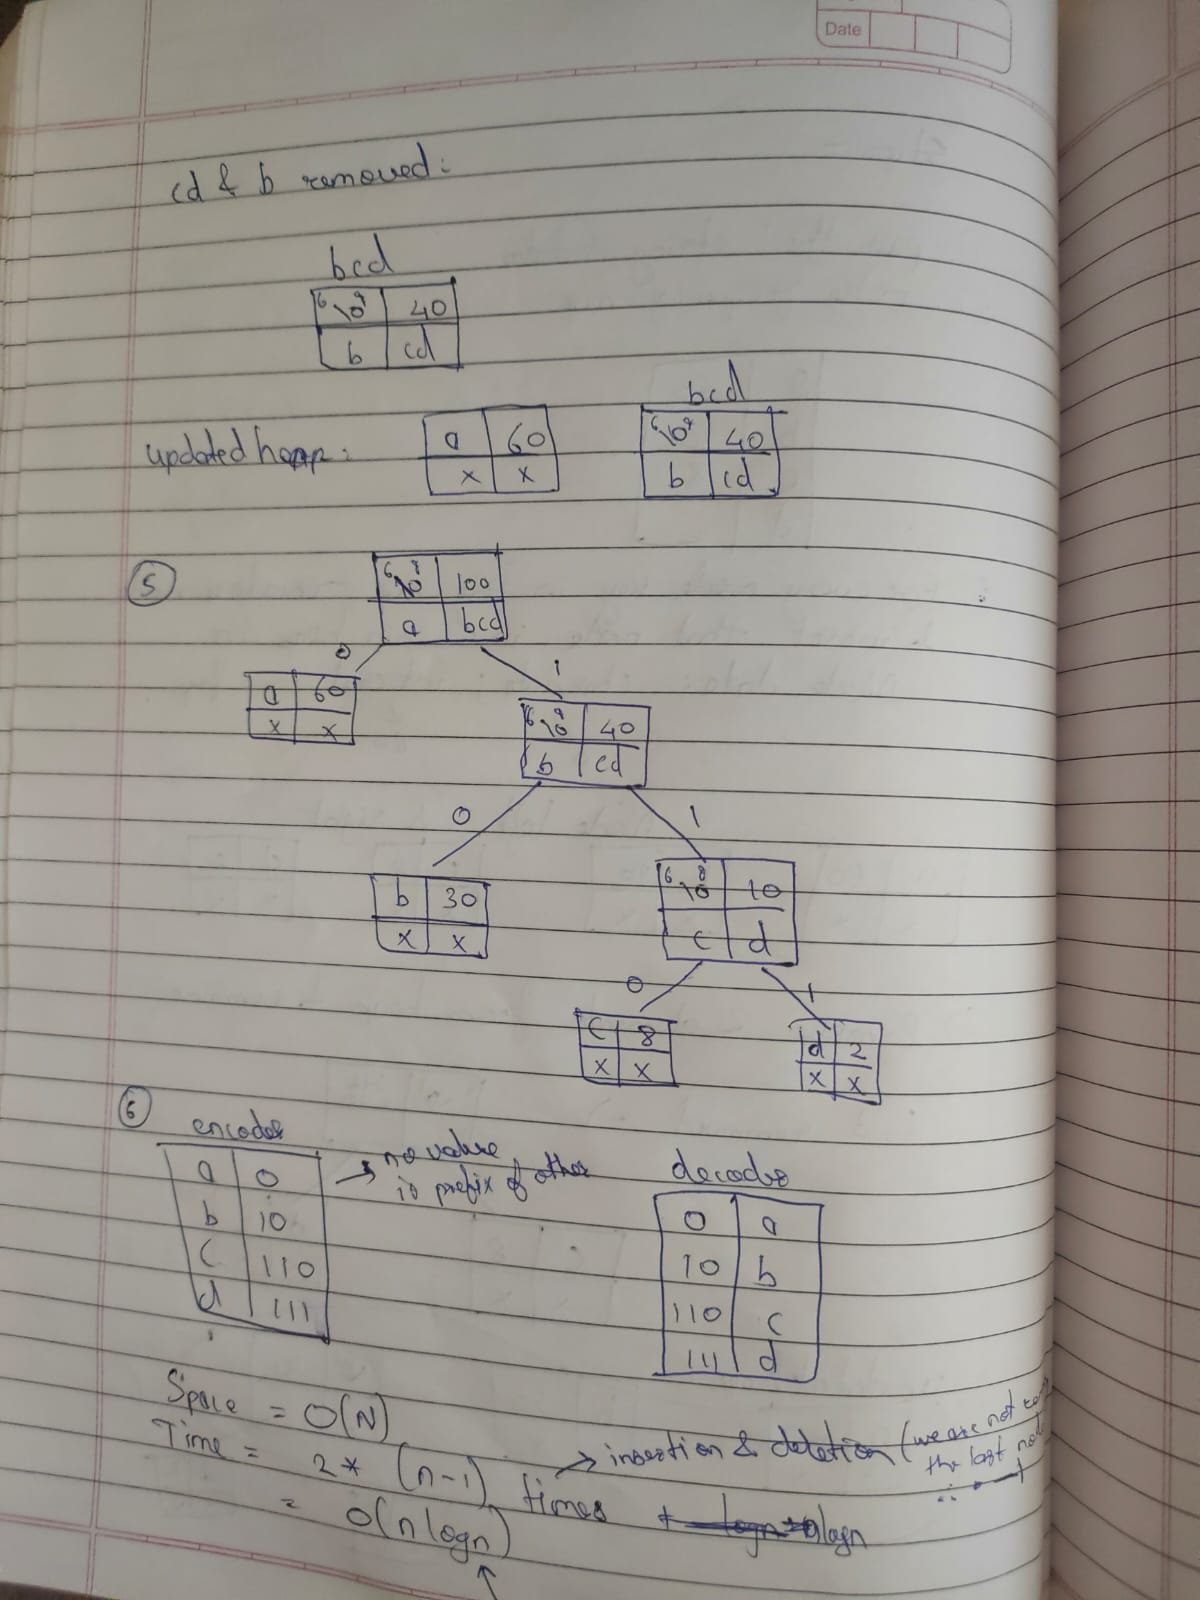 Date
cd & b removed:
bcd
'\0' 40
b cd
bcd
updated heap:
a 60
x x
'\0' 40
b cd
5
'\0' 100
a bcd
0
1
a 60
x x
'\0' 40
b cd
0
1
b 30
x x
'\0' 10
c d
0
1
c 8
x x
d 2
x x
6
encoder
a 0
b 10
c 110
d 111
→ no value
is prefix of other
decoder
0 a
10 b
110 c
111 d
Space = O(N)
Time = 2* (n-1) times + logn
→ insertion & deletion (we are not
the last
= O(n logn)